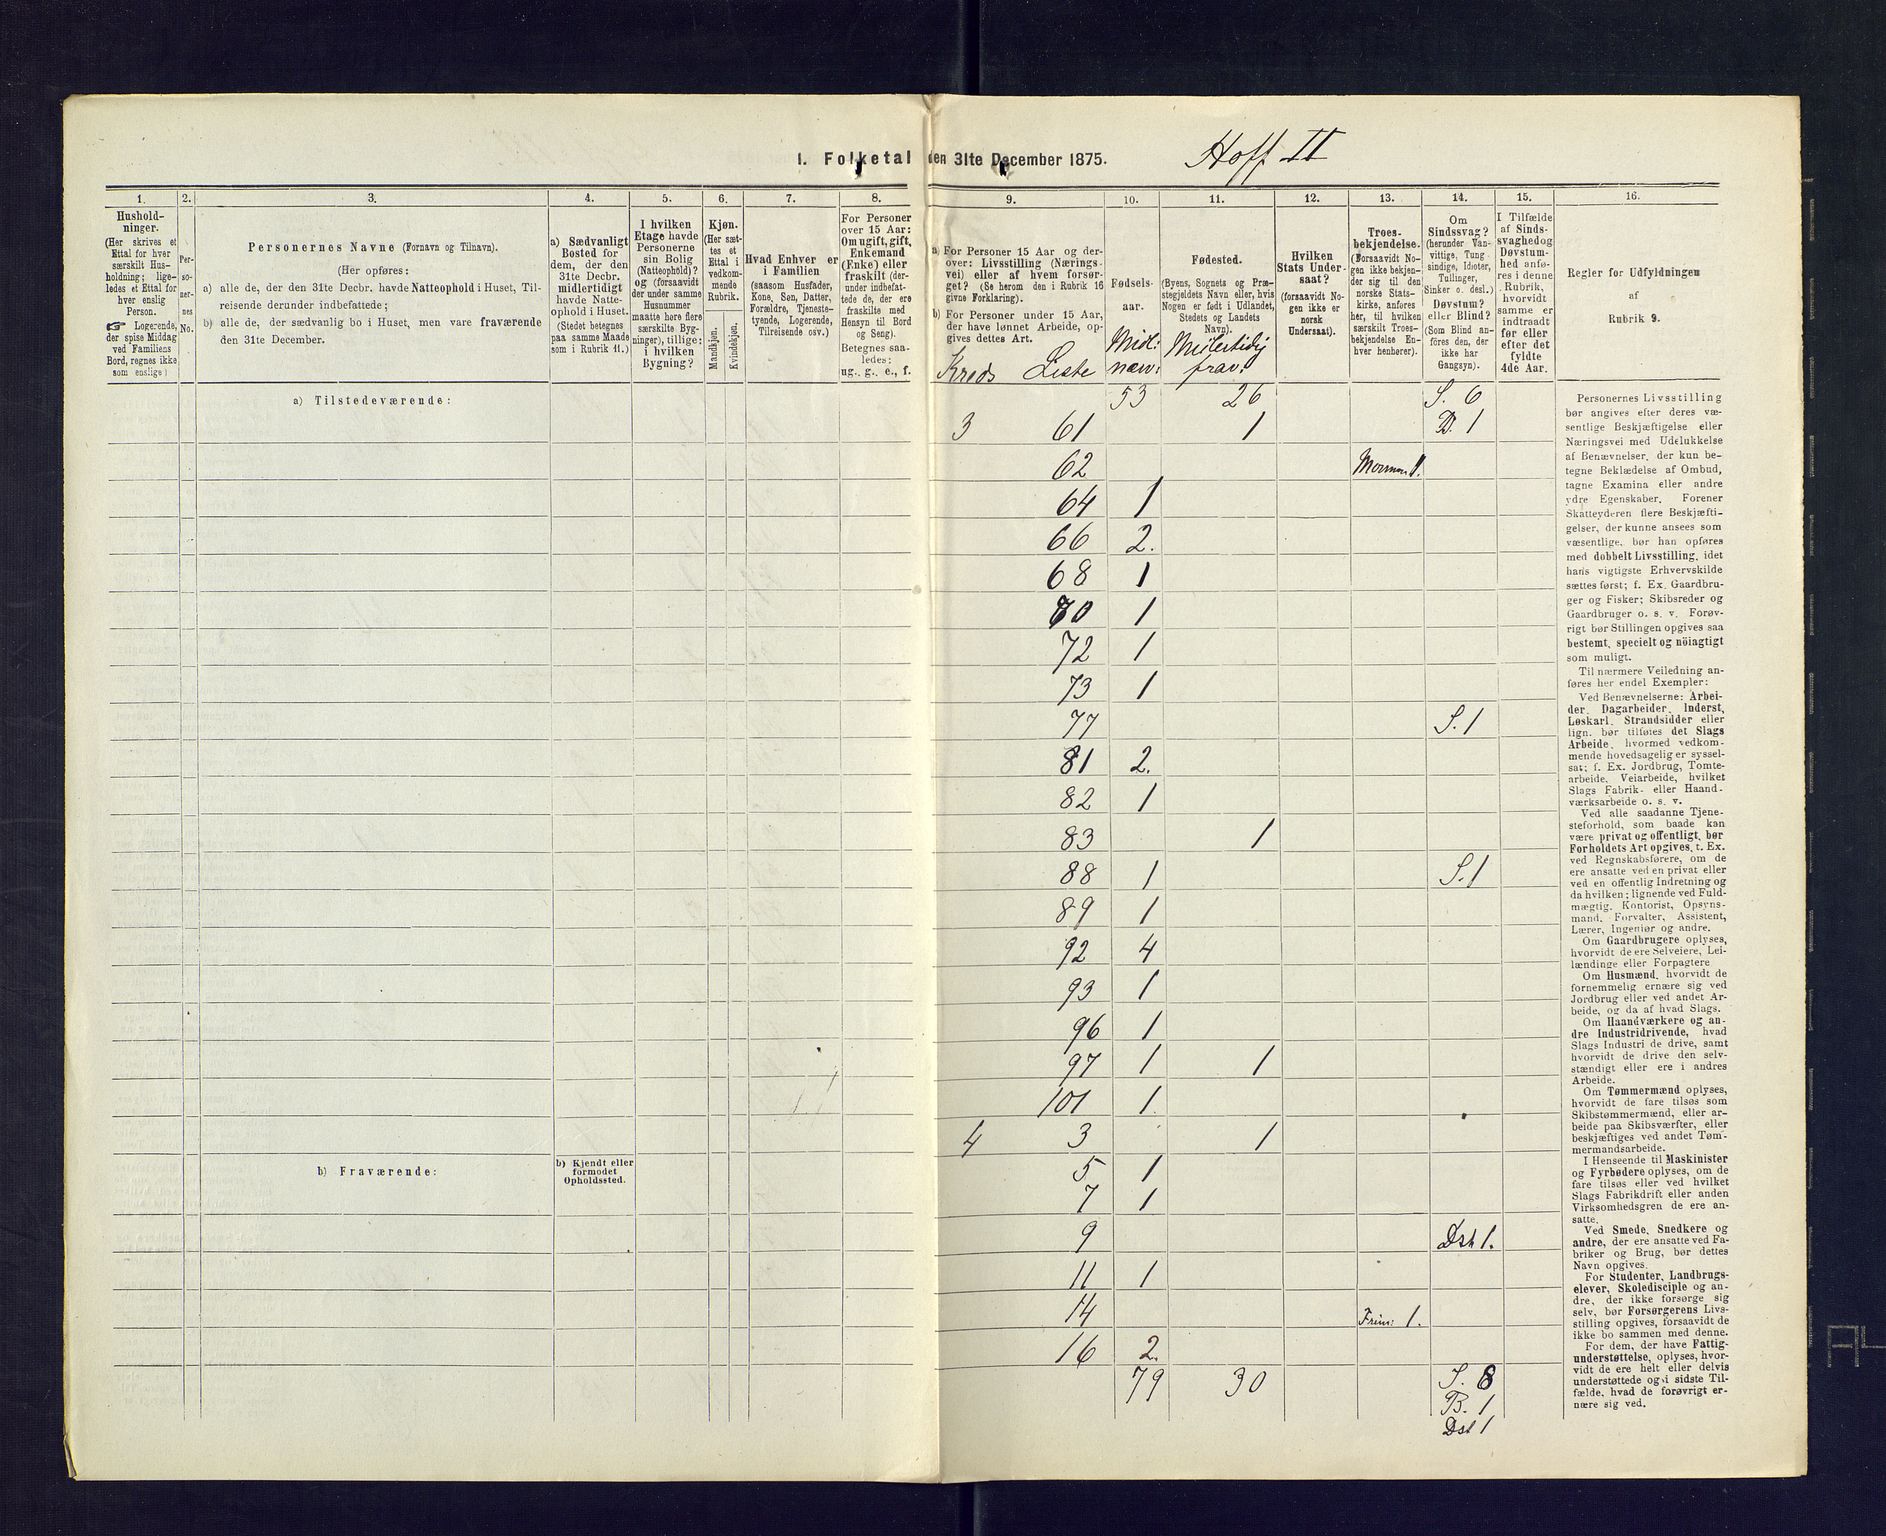 I. Folketal den 31te December 1875.
Hoff II
1.
2.
3.
4.
5.
6.
7.
8.
9.
10.
11.
12.
13.
14.
15.
16.
Hushold-
ninger.
(Her skrives et
Ettal for hver
særskilt Hus-
holdning; lige-
ledes et Ettal for
hver enslig
Person.
☞ Logerende,
der spise Middag
ved Familiens
Bord, regnes ikke
som enslige.)
Per-
so-
ner-
nes
No.
Personernes Navne (Fornavn og Tilnavn).
(Her opføres:
a) alle de, der den 31te Decbr. havde Natteophold i Huset, Til-
reisende derunder indbefattede;
b) alle de, der sædvanlig bo i Huset, men vare fraværende
den 31te December.
a) Sædvanligt
Bosted for
dem, der den
31te Decbr.
midlertidigt
havde Natte-
ophold i Huset.
(Stedet betegnes
paa samme Maade
som i Rubrik 11.)
I hvilken
Etage havde
Personerne
sin Bolig
(Natteophold)?
og (forsaavidt
der under samme
Husnummer
maatte høre flere
særskilte Byg-
ninger), tillige:
i hvilken
Bygning?
Kjøn.
(Her sæt-
tes et
Ettal i
vedkom-
mende
Rubrik.
Mandkjøn.
Kvindekjøn.
Hvad Enhver er
i Familien
(saasom Husfader,
Kone, Søn, Datter,
Forældre, Tjeneste-
tyende, Logerende,
Tilreisende osv.)
For Personer
over 15 Aar:
Om ugift, gift,
Enkemand
(Enke) eller
fraskilt (der-
under indbefat-
tede de, der ere
fraskilte med
Hensyn til Bord
og Seng).
Betegnes saa-
ledes:
ug., g., e., f.
a) For Personer 15 Aar og der-
over: Livsstilling (Nærings-
vei) eller af hvem forsør-
get? (Se herom den i Rubrik 16
givne Forklaring).
b) For Personer under 15 Aar,
der have lønnet Arbeide, op-
gives dettes Art.
Kreds Liste
Fødsels-
aar.
Midl:
nærv:
Fødested.
(Byens, Sognets og Præ-
stegjeldets Navn eller, hvis
Nogen er født i Udlandet,
Stedets og Landets
Navn).
Midlertidig
frav:
Hvilken
Stats Under-
saat?
(forsaavidt No-
gen ikke er
norsk
Undersaat).
Troes-
bekjendelse.
(Forsaavidt No-
gen ikke bekjen-
der sig til den
norske Stats-
kirke, anføres
her, til hvilken
særskilt Troes-
bekjendelse En-
hver henhører).
Om
Sindssvag?
(herunder Van-
vittige, Tung-
sindige, Idioter,
Tullinger,
Sinker o. desl.)
Døvstum?
eller Blind?
(Som Blind an-
føres den, der
ikke har
Gangsyn).
I Tilfælde
af Sinds-
svaghed og
Døvstum-
hed anfø-
res i denne
Rubrik,
hvorvidt
samme er
indtraadt
før eller
efter det
fyldte
4de Aar.
Regler for Udfyldningen
af
Rubrik 9.
a) Tilstedeværende:
53 26 S. 6
3 61 1 B. 1
62 Mormon 1.
64 1
66 2.
68 1
70 1
72 1
73 1
77 S. 1
81 2.
82 1
83 1
88 1 S. 1
89 1
92 4
93 1
96 1
97 1 1
101 1.
4 3 1
b) Fraværende:
b) Kjendt eller
formodet
Opholdssted.
5 1
7 1
9 Dst 1.
11 1
14 Frim: 1.
16 2.
79 30 S. 8
B. 1
Dst 1
Personernes Livsstilling
bør angives efter deres væ-
sentlige Beskjæftigelse eller
Næringsvei med Udelukkelse
af Benævnelser, der kun be-
tegne Beklædelse af Ombud,
tagne Examina eller andre
ydre Egenskaber. Forener
Skatteyderen flere Beskjæfti-
gelser, der kunne ansees som
væsentlige, bør han opføres
med dobbelt Livsstilling, idet
hans vigtigste Erhvervskilde
sættes først; f. Ex. Gaardbru-
ger og Fisker; Skibsreder og
Gaardbruger o. s. v. Forøv-
rigt bør Stillingen opgives saa
bestemt, specielt og nöiagtigt
som muligt.
Til nærmere Veiledning an-
føres her endel Exempler:
Ved Benævnelserne: Arbei-
der, Dagarbeider, Inderst,
Løskarl, Strandsidder eller
lign. bør tilføies det Slags
Arbeide, hvormed vedkom-
mende hovedsagelig er syssel-
sat; f. Ex. Jordbrug, Tomte-
arbeide, Veiarbeide, hvilket
Slags Fabrik- eller Haand-
værksarbeide o. s. v.
Ved alle saadanne Tjene-
steforhold, som baade kan
være privat og offentligt, bør
Forholdets Art opgives, t. Ex.
ved Regnskabsførere, om de
ere ansatte ved en privat eller
ved en offentlig Indretning og
da hvilken; lignende ved Fuld-
mægtig, Kontorist, Opsyns-
mand, Forvalter, Assistent,
Lærer, Ingeniør og andre.
Om Gaardbrugere oplyses,
hvorvidt de ere Selveiere, Lei-
lændinge eller Forpagtere
Om Husmænd, hvorvidt de
fornemmelig ernære sig ved
Jordbrug eller ved andet Ar-
beide, og da af hvad Slags.
Om Haandværkere og an-
dre Industridrivende, hvad
Slags Industri de drive, samt
hvorvidt de drive den selv-
stændigt eller ere i andres
Arbeide.
Om Tømmermænd oplyses,
hvorvidt de fare tilsøs som
Skibstømmermænd, eller ar-
beide paa Skibsværfter, eller
beskjæftiges ved andet Tøm-
mermandsarbeide.
I Henseende til Maskinister
og Fyrbødere oplyses, om de
fare tilsøs eller ved hvilket
Slags Fabrikdrift eller anden
Virksomhedsgren de ere an-
satte.
Ved Smede, Snedkere og
andre, der ere ansatte ved Fa-
briker og Brug, bør dettes
Navn opgives.
For Studenter, Landbrugs-
elever, Skoledisciple og an-
dre, der ikke forsørge sig
selv, bør Forsørgerens Livs-
stilling opgives, forsaavidt de
ikke bo sammen med denne.
For dem, der have Fattig-
understøttelse, oplyses, hvor-
vidt de ere helt eller delvis
understøttede og i sidste Til-
fælde, hvad de forøvrigt er-
nære sig ved.